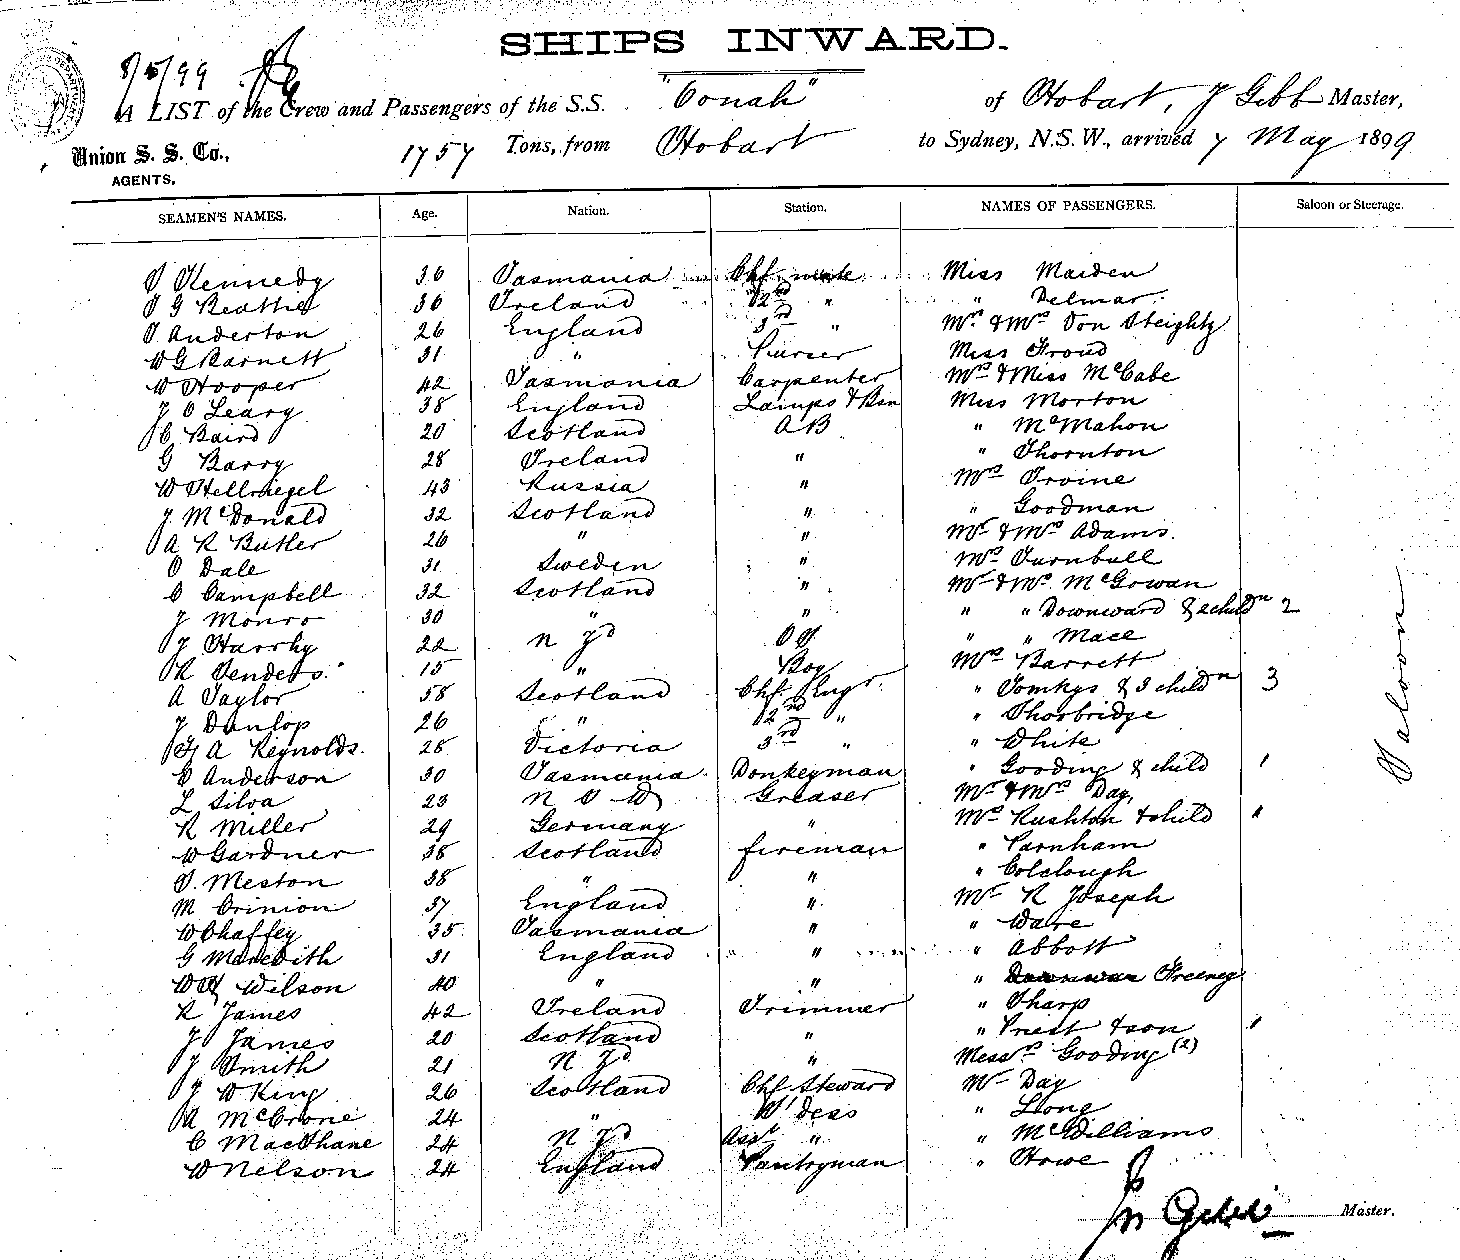 SHIPS INWARD.
8/5/99
A LIST of the Crew and Passengers of the S.S. "Oonah" of Hobart, J Gibb Master,
Union S. S. Co., AGENTS, 1757 Tons, from Hobart to Sydney, N.S.W., arrived 7 May 1899
SEAMEN'S NAMES. Age. Nation. Station. NAMES OF PASSENGERS. Saloon or Steerage.
Kennedy 36 Tasmania Chf mate Miss Maiden
J G Beattie 36 Ireland 2nd " " Delmar
Anderton 26 England 3rd " Mr & Mrs Von Steightz
W G Barnett 31 " Purser Miss Froud
W Hooper 42 Tasmania Carpenter Mrs & Miss McCabe
J O Leary 38 England Lamps & Miss Morton
C Baird 20 Scotland AB " McMahon
G Barry 28 Ireland " " Thornton
W Hellriegel 43 Russia " Mrs Irvine
J McDonald 32 Scotland " " Goodman
A R Butler 26 " " Mr & Mrs Adams.
O Dale 31 Sweden " Mrs Turnbull
C Campbell 32 Scotland " Mr & Mrs McGowan
J Monro 30 " " " " Downward & 2 childn 2
J Harrhy 22 N Zd OS " " Mace
R Fenders. 15 " Boy Mrs Barrett
A Taylor 58 Scotland Chf Engr. " Tomkys & 3 childn 3
J Dunlop 26 " 2nd " " Thorbridge
A Reynolds. 28 Victoria 3rd " " White
C Anderson 30 Tasmania Donkeyman " Gooding & child 1
L Silva 23 N S W Greaser Mr & Mrs Day,
R Miller 29 Germany " Mrs Rushton & child "
W Gardner 38 Scotland fireman " Parnham
Meston 38 " " " Colclough
M Crinion 37 England " Mr R Joseph
W Chaffey 35 Tasmania " " Ware
G Meredith 31 England " " Abbott
W Wilson 40 " " " Freeney
R James 42 Ireland Trimmer " Tharp
J James 20 Scotland " " Priest & son 1
J Smith 21 N Zd " Messrs Gooding (2)
J W King 26 Scotland Chf Steward Mr Day
A McCrone 24 " " Long
C MacShane 24 N Zd Asst " " McWilliams
W Nelson 24 England Pantryman " Howe
Saloon
Master.